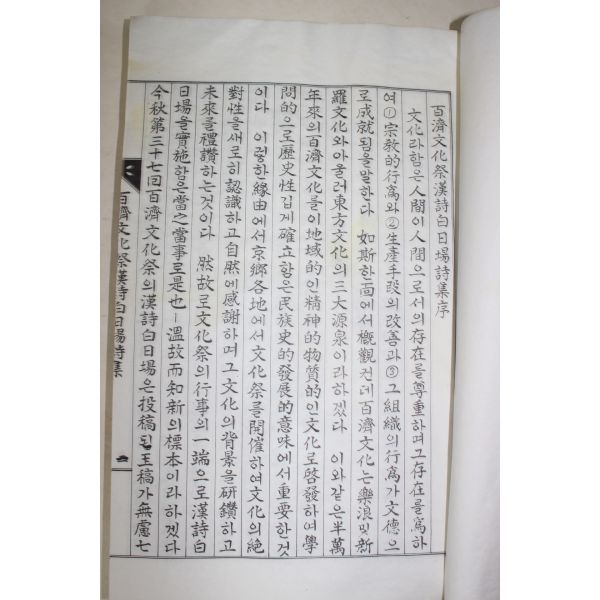 百濟文化祭漢詩白日場詩集序
文化라함은人間이人間으로서의存在를尊重하며그存在를爲하
여①宗敎的行爲와②生產手段의改善과③그組織의行爲가文德으
로成就됨을말한다 如斯한面에서槪觀컨데百濟文化는樂浪및新
羅文化와아울러東方文化의三大源泉이라하겠다 이와같은半萬
年來의百濟文化를이地域的인精神的物質的인文化로啓發하여學
問的으로歷史性깁게確立함은民族史的發展的意味에서重要한것
이다 이렇한緣由에서京鄕各地에서文化祭를開催하여文化의絶
對性을새로히認識하고自然에感謝하며그文化의背景을硏鑽하고
未來를禮讚하는것이다 然故로文化祭의行事의一端으로漢詩白
日場을實施함은當之當事로是也ㅡ溫故而知新의標本이라하겠다
今秋第三十七回百濟文化祭의漢詩白日場은投稿된玉稿가無慮七
百濟文化祭漢詩白日場詩集